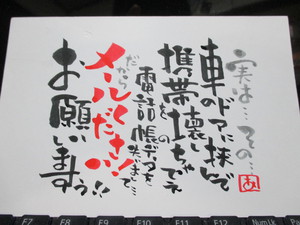 実は…その…
車のドアに挟んで
携帯壊しちゃってネ
電話帳のデータを
失いまして…
だから
メールください!!
お願いします!!
F7 F8 F9 F10 F11 F12 NumLk